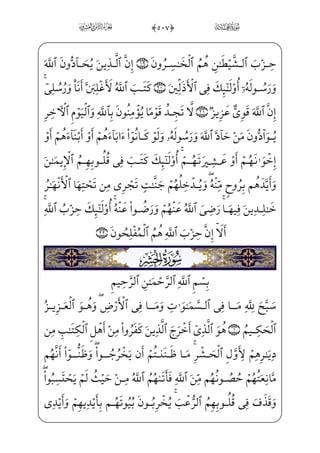 الجزء الثامن والعشرون ﴿٥٠٧﴾ سورة المجادلة
حِزْبَ ٱلشَّيْطَٰنِ هُمُ ٱلْخَٰسِرُونَ ١٩ إِنَّ ٱلَّذِينَ يُحَآدُّونَ ٱللَّهَ
وَرَسُولَهُۥٓ أُو۟لَٰٓئِكَ فِى ٱلْأَذَلِّينَ ٢٠ كَتَبَ ٱللَّهُ لَأَغْلِبَنَّ أَنَا۠ وَرُسُلِىٓ ۚ
إِنَّ ٱللَّهَ قَوِىٌّ عَزِيزٌ ٢١ لَّا تَجِدُ قَوْمًا يُؤْمِنُونَ بِٱللَّهِ وَٱلْيَوْمِ ٱلْءَاخِرِ
يُوَآدُّونَ مَنْ حَآدَّ ٱللَّهَ وَرَسُولَهُۥ وَلَوْ كَانُوٓا۟ ءَابَآءَهُمْ أَوْ أَبْنَآءَهُمْ أَوْ
إِخْوَٰنَهُمْ أَوْ عَشِيرَتَهُمْ ۚ أُو۟لَٰٓئِكَ كَتَبَ فِى قُلُوبِهِمُ ٱلْإِيمَٰنَ
وَأَيَّدَهُم بِرُوحٍ مِّنْهُ ۖ وَيُدْخِلُهُمْ جَنَّٰتٍ تَجْرِى مِن تَحْتِهَا ٱلْأَنْهَٰرُ
خَٰلِدِينَ فِيهَا ۚ رَضِىَ ٱللَّهُ عَنْهُمْ وَرَضُوا۟ عَنْهُ ۚ أُو۟لَٰٓئِكَ حِزْبُ ٱللَّهِ ۚ
أَلَآ إِنَّ حِزْبَ ٱللَّهِ هُمُ ٱلْمُفْلِحُونَ ٢٢
سورة الحشر
بِسْمِ ٱللَّهِ ٱلرَّحْمَٰنِ ٱلرَّحِيمِ
سَبَّحَ لِلَّهِ مَا فِى ٱلسَّمَٰوَٰتِ وَمَا فِى ٱلْأَرْضِ ۖ وَهُوَ ٱلْعَزِيزُ
ٱلْحَكِيمُ ١ هُوَ ٱلَّذِىٓ أَخْرَجَ ٱلَّذِينَ كَفَرُوا۟ مِنْ أَهْلِ ٱلْكِتَٰبِ مِن
دِيَٰرِهِمْ لِأَوَّلِ ٱلْحَشْرِ ۚ مَا ظَنَنتُمْ أَن يَخْرُجُوا۟ ۖ وَظَنُّوٓا۟ أَنَّهُم
مَّانِعَتُهُمْ حُصُونُهُم مِّنَ ٱللَّهِ فَأَتَىٰهُمُ ٱللَّهُ مِنْ حَيْثُ لَمْ يَحْتَسِبُوا۟ ۖ
وَقَذَفَ فِى قُلُوبِهِمُ ٱلرُّعْبَ ۚ يُخْرِبُونَ بُيُوتَهُم بِأَيْدِيهِمْ وَأَيْدِى